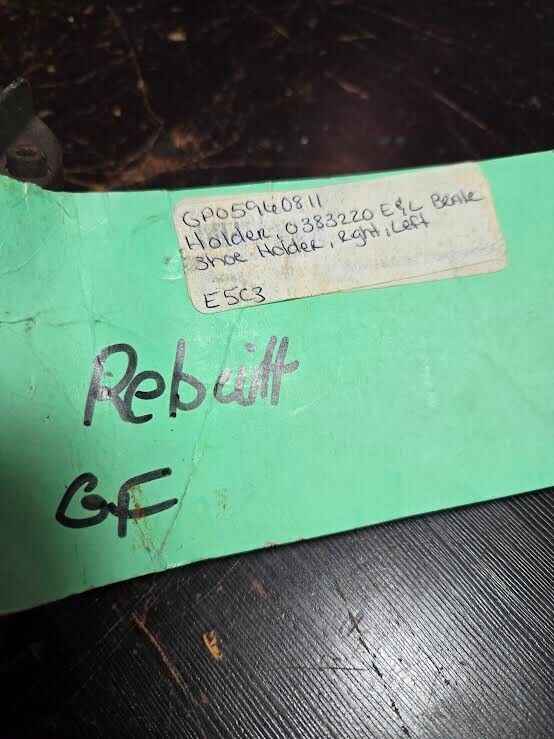 GP05940811
Holder, 0383220 E&L Brake
Shoe Holder, Right, Left
E5C3
Rebuilt
GF